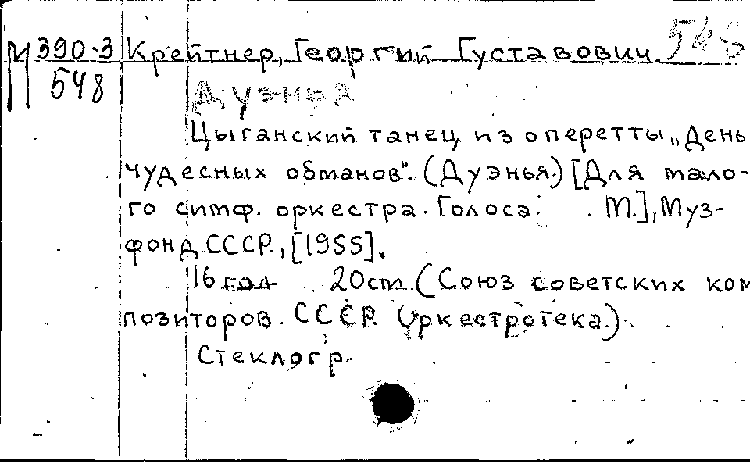 М 390-3 Крейтнер, Георгий Густавович 548
548 Дуэнья
Цыганский танец из оперетты „День
чудесных обманов". (Дуэнья.) [Для мало-
го симф. оркестра. Голоса. М.], Муз-
фонд СССР, [1955].
16 20 cm. (Союз советских ком
позиторов СССР. Оркестротека.).
Стеклогр.